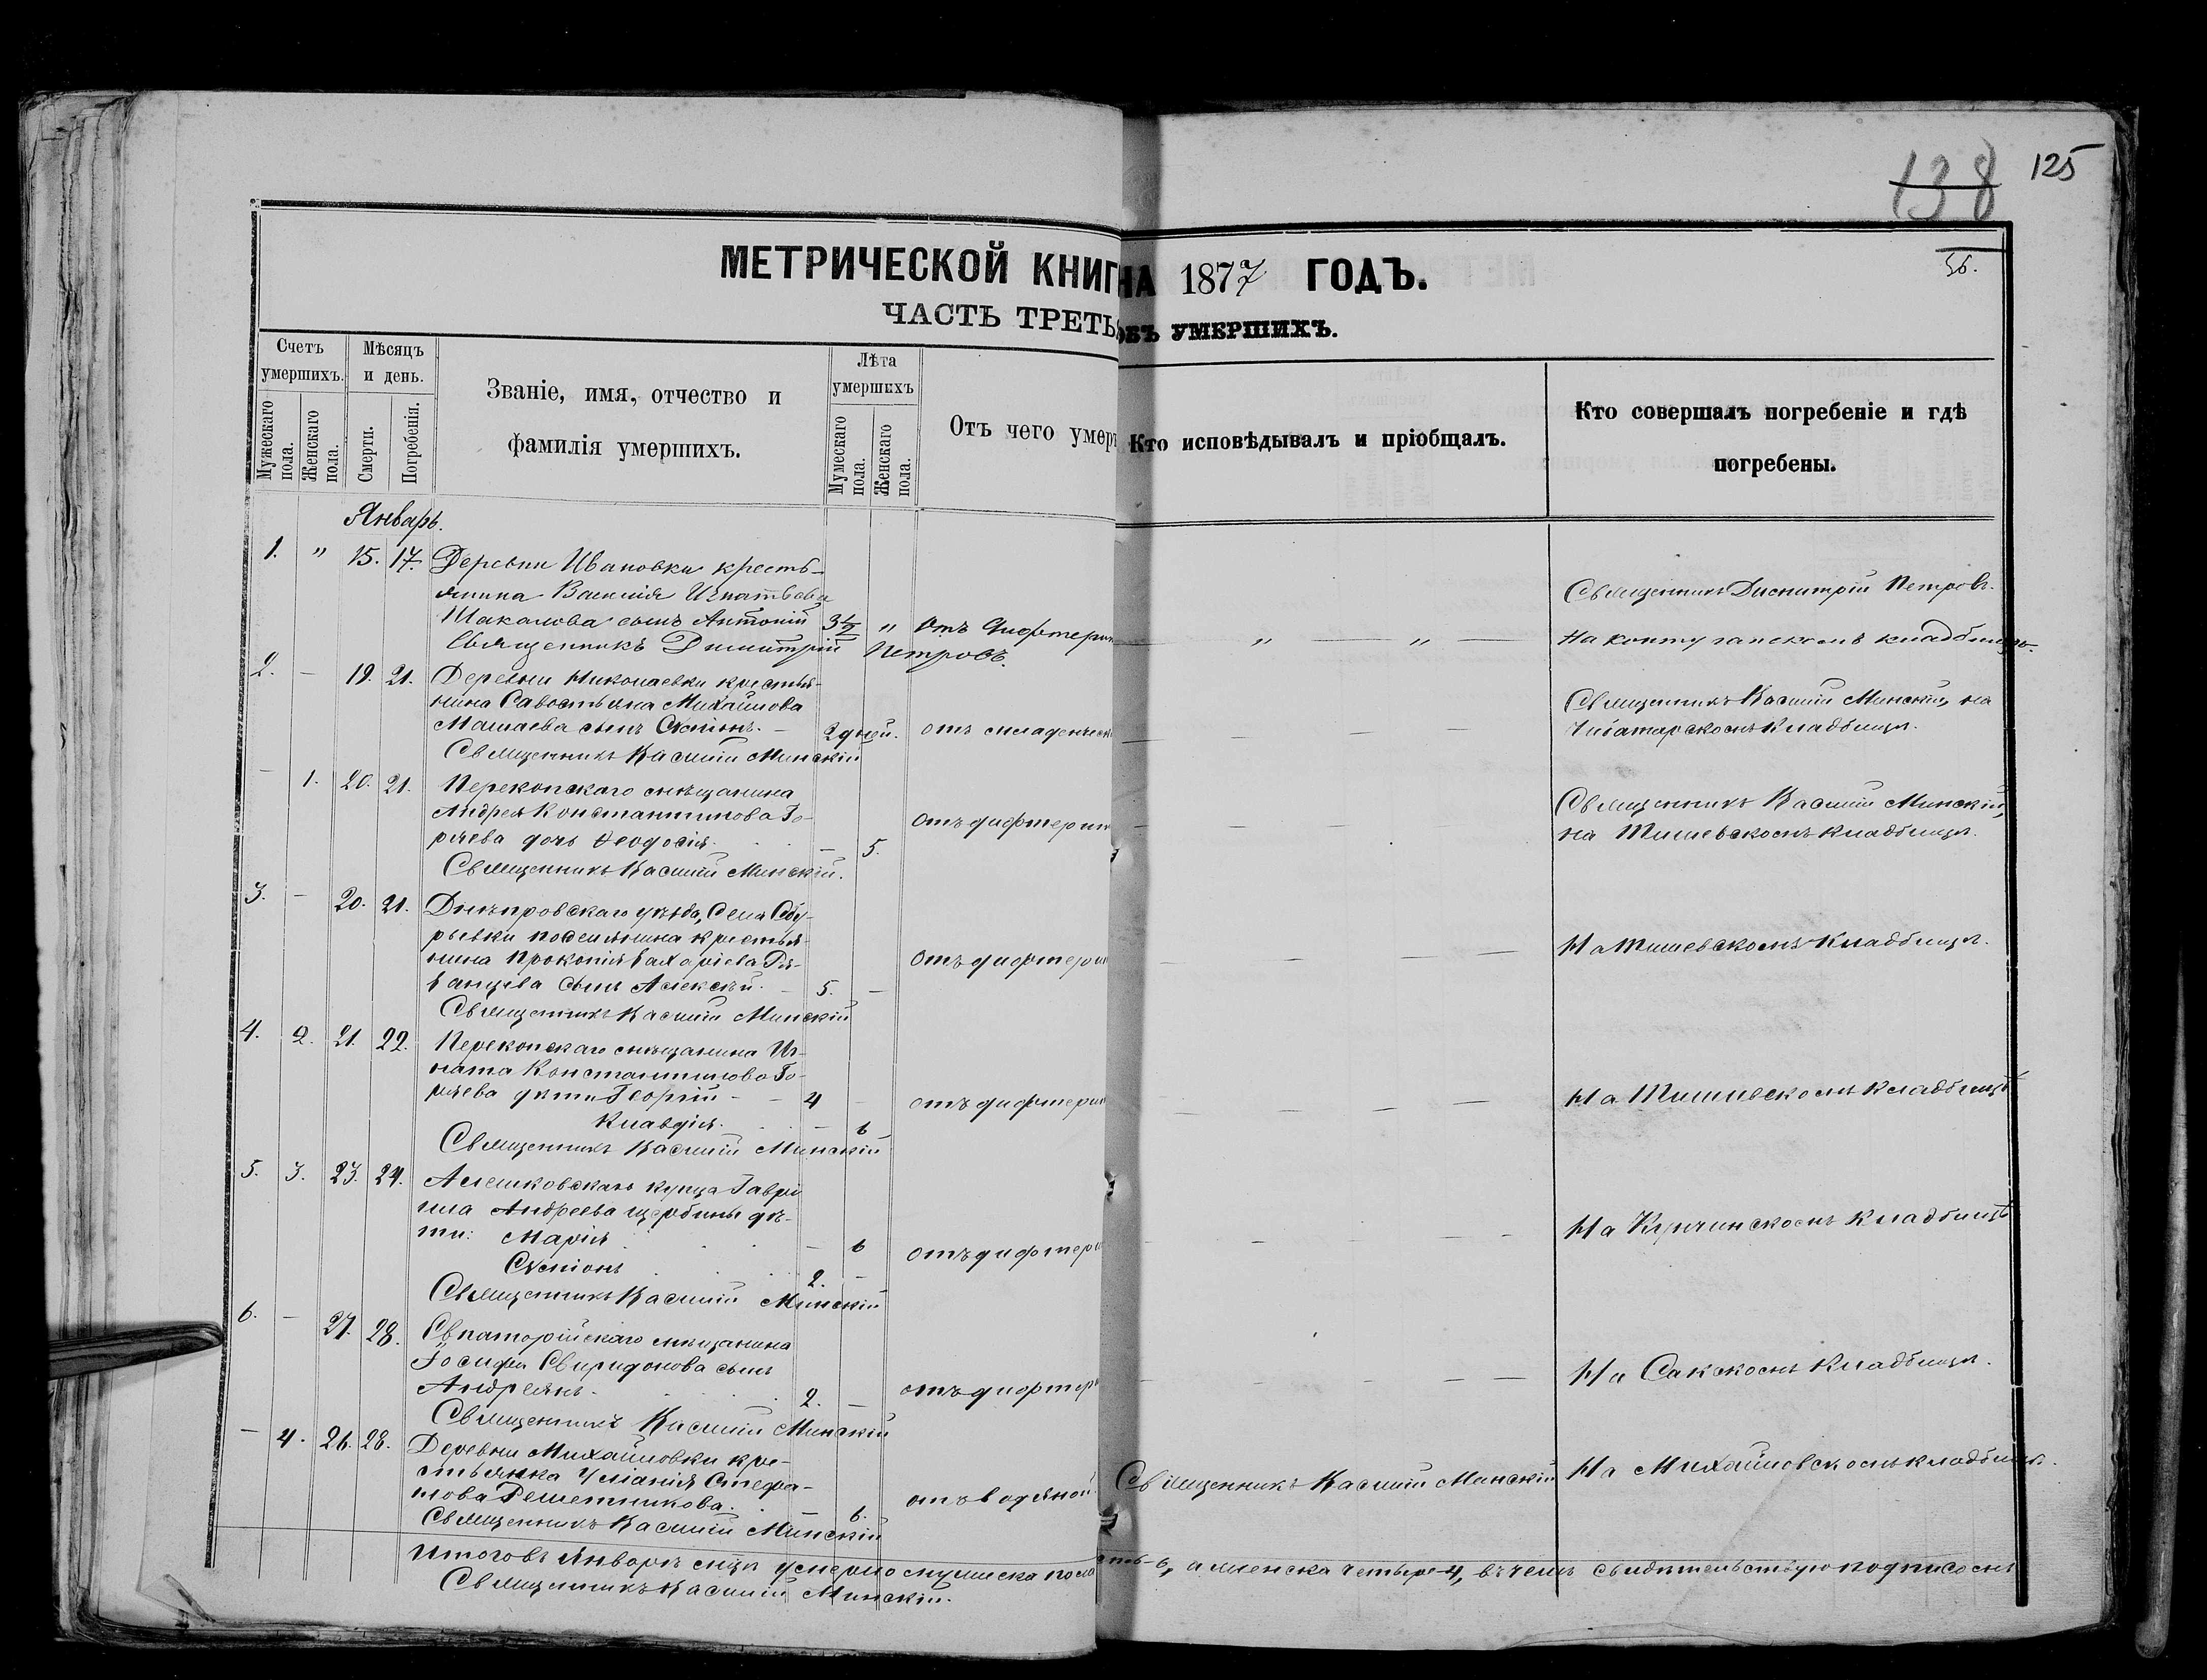 138 125
56.
МЕТРИЧЕСКОЙ КНИГ НА 1877 ГОДЪ.
ЧАСТЬ ТРЕТЬ ОБЪ УМЕРШИХЪ.
Счетъ умершихъ.
Мужескаго пола.
Женскаго пола.
Мѣсяцъ и день.
Смерти.
Погребенія.
Званіе, имя, отчество и
фамилія умершихъ.
Лѣта умершихъ
Мужескаго пола.
Женскаго пола.
Отъ чего умер
Кто исповѣдывалъ и пріобщалъ.
Кто совершалъ погребеніе и гдѣ
погребены.
Январь.
1. " 15. 17. Деревни Ивановки кресть-
янина Василія Игнатьева
Шакалова сынъ Антоній 3½ " Отъ дифтери
Священникъ Димитрій Петровъ.
Священникъ Димитрій Петровъ.
на кладбищѣ.
2. — 19. 21. Деревни Николаевки крестья-
нина Савостьяна Михайлова
сынъ Симеонъ. 2 дней. отъ младенческ
Священникъ Василій Минскій
Священникъ Василій Минскій, на
Чибатарскомъ кладбищѣ.
— 1. 20. 21. Перекопскаго мѣщанина
Андрея Константинова Го-
ряева дочь Ѳеодосія. — 5. отъ дифтерит
Священникъ Василій Минскій.
Священникъ Василій Минскій,
на Тишевскомъ кладбищѣ.
3. — 20. 21. Днѣпровскаго уѣзда, Села
поселянина крестья-
нина Прокопія Захаріева Ря-
занцева сынъ Алексѣй. 5. — Отъ дифтери
Священникъ Василій Минскій
На Тишевскомъ кладбищѣ.
4. 2. 21. 22. Перекопскаго мѣщанина Иг-
ната Константинова Го-
ряева дѣти Георгій — 4 — отъ дифтери
Клавдія. — 6
Священникъ Василій Минскій
На Тишевскомъ кладбищѣ
5. 3. 23. 24. Алешковскаго купца Гаврі
ила Андреева Щербины дѣ-
ти: Марія — 6 отъ дифтери
Симеонъ 2. —
Священникъ Василій Минскій
На кладбищѣ
6. — 27. 28. Евпаторійскаго мѣщанина
Іосифа Свиридонова сынъ
Андреянъ. 2. — отъ дифтер
Священникъ Василій Минскій
На Сакскомъ кладбищѣ.
— 4. 26. 28. Деревни Михайловки кре-
стьянка Уліанія Стефа-
нова Решетникова. — 6. отъ водяной
Священникъ Василій Минскій
Священникъ Василій Минскій
На Михайловскомъ кладбищѣ.
Итого въ Январѣ мцѣ умерло мужеска пола 6, а женска четыре 4, въ чемъ свидѣтельствую подписомъ
Священникъ Василій Минскій.